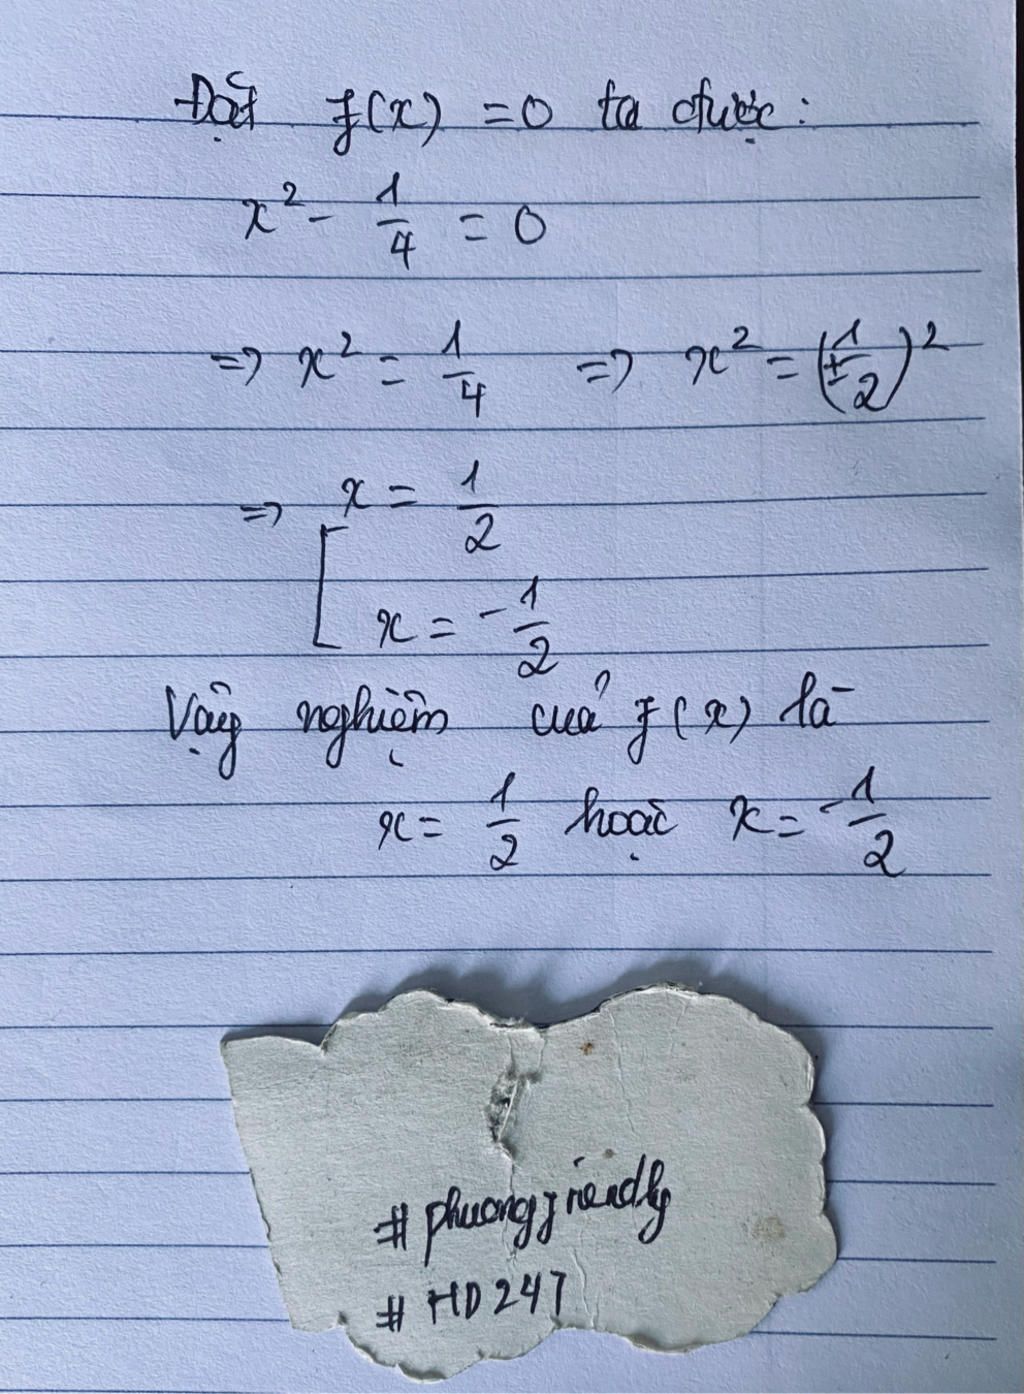 Đặt f(x) = 0 ta được:
x² - 1/4 = 0
=> x² = 1/4 => x² = (± 1/2)²
=> [ x = 1/2
x = - 1/2
Vậy nghiệm của f(x) là
x = 1/2 hoặc x = - 1/2
# phuongfriendly
# HD247